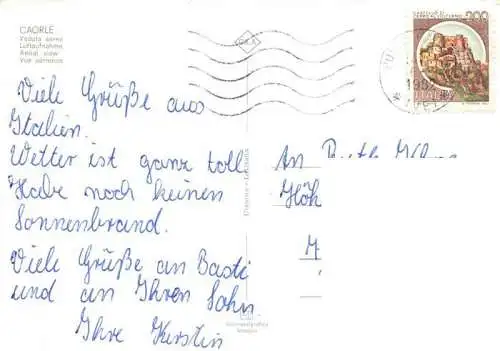 CAORLE
Veduta aerea
Luftaufnahme
Aerial view
Vue aérienne
Viele Grüße aus
Italien.
Wetter ist ganz toll
Habe noch keinen
Sonnenbrand.
Viele Grüße an Basti
und an Ihren Sohn
Ihre Kerstin
200
ITALIA
An
Höh
M